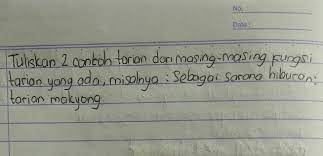 No.
Date:
Tuliskan 2 contoh tarian dari masing-masing fungsi
tarian yang ada, misalnya : Sebagai sarana hiburan :
tarian makyong